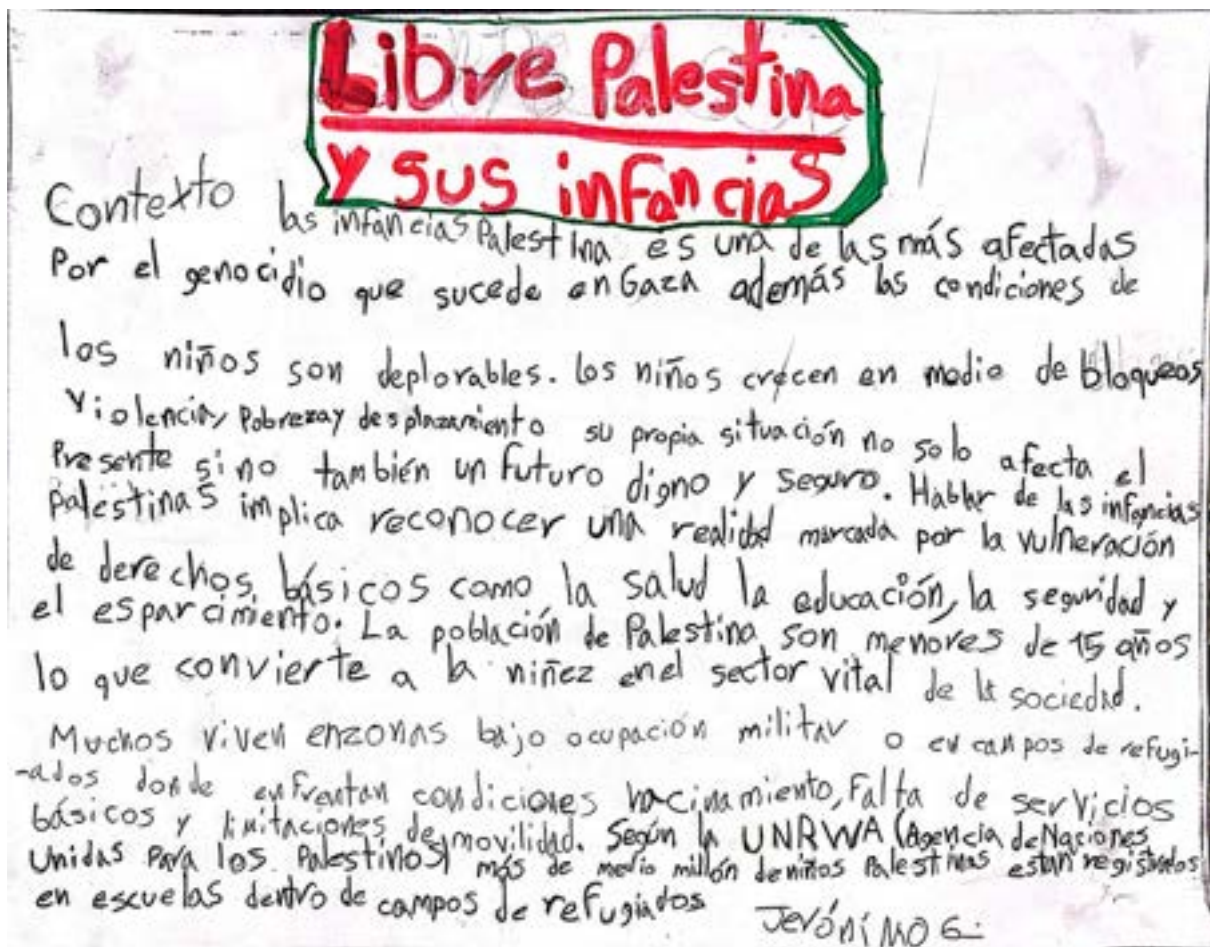 Libre Palestina
y sus infancias
Contexto las infancias Palestina es una de las más afectadas
Por el genocidio que sucede en Gaza además las condiciones de
los niños son deplorables. los niños crecen en medio de bloqueos
violencia, Pobreza y desplazamiento su propia situación no solo afecta el
Presente sino también un futuro digno y seguro. Hablar de las infancias
Palestinas implica reconocer una realidad marcada por la vulneración
de derechos básicos como la salud la educación, la seguridad y
el esparcimiento. La población de Palestina son menores de 15 años
lo que convierte a la niñez en el sector vital de la sociedad.
Muchos viven en zonas bajo ocupación militar o en campos de refugi-
-ados donde enfrentan condiciones hacinamiento, Falta de servicios
básicos y limitaciones de movilidad. Según la UNRWA (Agencia de Naciones
Unidas Para los Palestinos) más de medio millón de niños Palestinas estan registrados
en escuelas dentro de campos de refugiados
Jerónimo G.